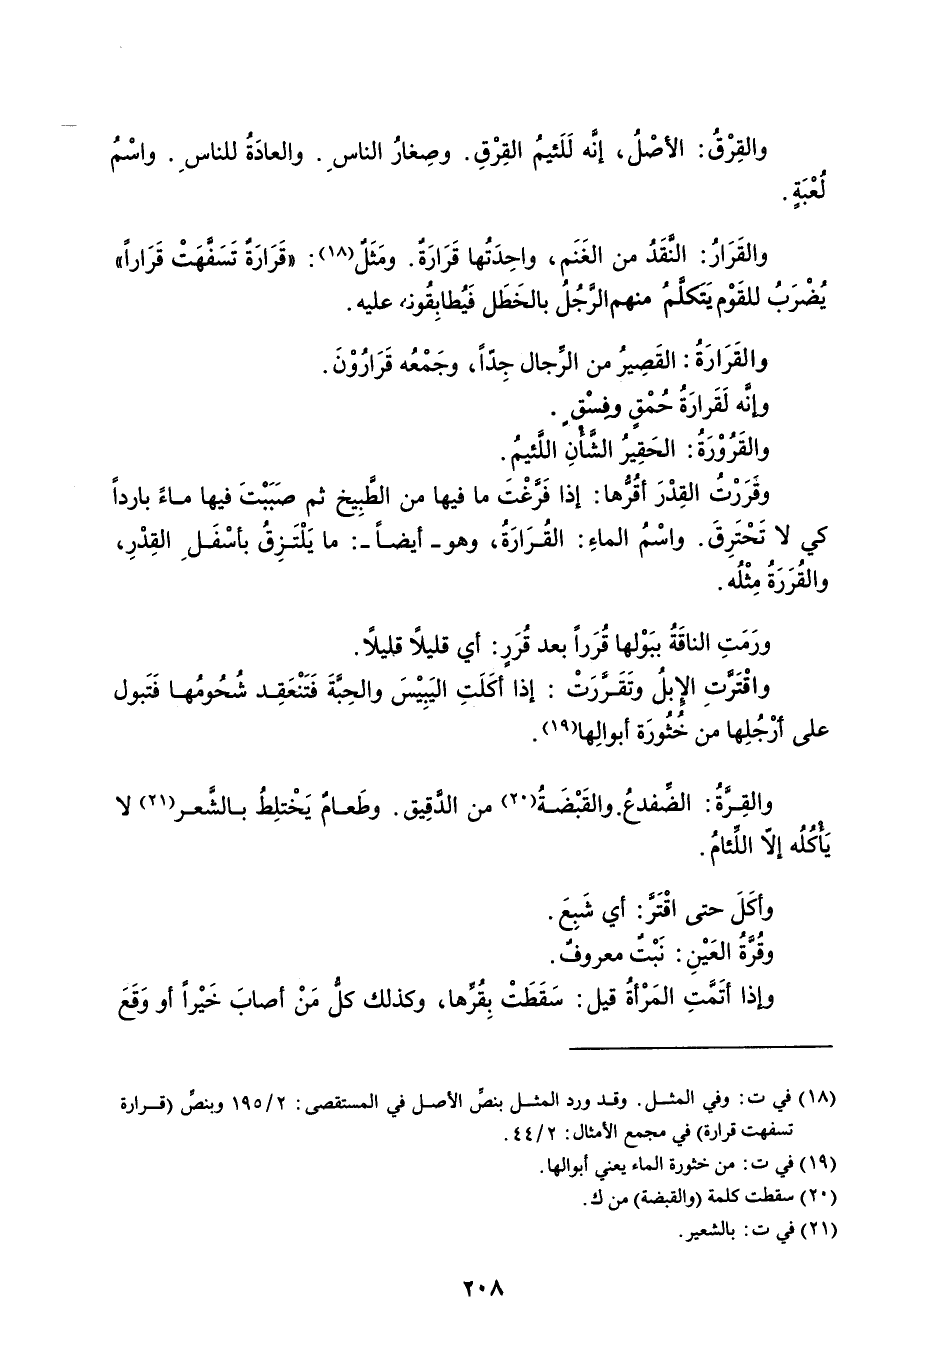 والقِرْقُ: الأصْلُ، إنَّه لَلَئيمُ القِرْقِ. وصِغارُ الناسِ. والعادَةُ للناسِ. واسْمُ
لُعْبَةٍ.
والقَرَارُ: النَّقَدُ من الغَنَم، واحِدَتُها قَرَارَةٌ. ومَثَلٌ(١٨): «قَرَارَةٌ تَسَفَّهَتْ قَرَاراً»
يُضْرَبُ للقَوْمِ يَتَكلَّمُ منهم الرَّجُلُ بالخَطَل فَيُطابِقُونه عليه.
والقَرَارَةُ: القَصِيرُ من الرِّجال جِدّاً، وجَمْعُه قَرَارُوْنَ.
وإنَّه لَقَرارَةُ حُمْقٍ وفِسْقٍ.
والقَرُوْرَةُ: الحَقِيرُ الشَّأْنِ اللَّئيمُ.
وقَرَرْتُ القِدْرَ أقُرُّها: إذا فَرَّغْتَ ما فيها من الطَّبِيخ ثم صَبَبْتَ فيها مـاءً بارداً
كي لا تَحْتَرِقَ. واسْمُ الماءِ: القُـرَارَةُ، وهو ـ أيضـاً ـ: ما يَلْتَـزِقُ بأسْفَلِ القِدْرِ،
والقُرَرَةُ مِثْلُه.
ورَمَتِ الناقَةُ بِبَوْلها قُرَراً بعد قُرَرٍ: أي قليلًا قليلًا.
واقْتَرَّتِ الإِبلُ وتَقَـرَّرَتْ: إذا أكَلَتِ اليَبِيْسَ والحِبَّةَ فَتَنْعَقِـد شُحُومُهـا فَتَبول
على أرْجُلِها من خُثُورَة أبوالِها(١٩).
والقِـرَّةُ: الضِّفدعُ. والقَبْضَـةُ(٢٠) من الدَّقِيق. وطَعـامٌ يَخْتلِطُ بـالشَّعـر(٢١) لا
يَأْكُلُه إلاّ اللِّئامُ.
وأكَلَ حتى اقْتَرَّ: أي شَبِعَ.
وقُرَّةُ العَيْنِ: نَبْتٌ معروفٌ.
وإذا أتَمَّتِ المَرْأةُ قيل: سَقَطَتْ بِقُرِّها، وكذلك كلُّ مَنْ أصابَ خَيْراً أو وَقَعَ
(١٨) في ت: وفي المثـل. وقـد ورد المثـل بنصِّ الأصـل في المستقصى: ١٩٥/٢ وبنصِّ (قـرارة
تسفهت قرارة) في مجمع الأمثال: ٤٤/٢.
(١٩) في ت: من خثورة الماء يعني أبوالها.
(٢٠) سقطت كلمة (والقبضة) من ك.
(٢١) في ت: بالشعير.
٢٠٨